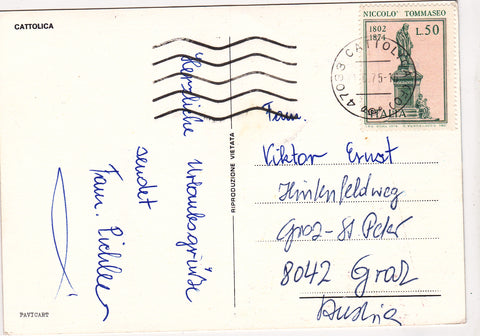 CATTOLICA
Herzliche Urlaubsgrüße
sendet
Fam. Pichler
PAVICART
RIPRODUZIONE VIETATA
NICCOLO' TOMMASEO
1802
1874
L.50
ITALIA
47033 CATTOLICA
75
Fam.
Viktor Ernst
Hinkenfeldweg
Graz-St Peter
8042 Graz
Austria